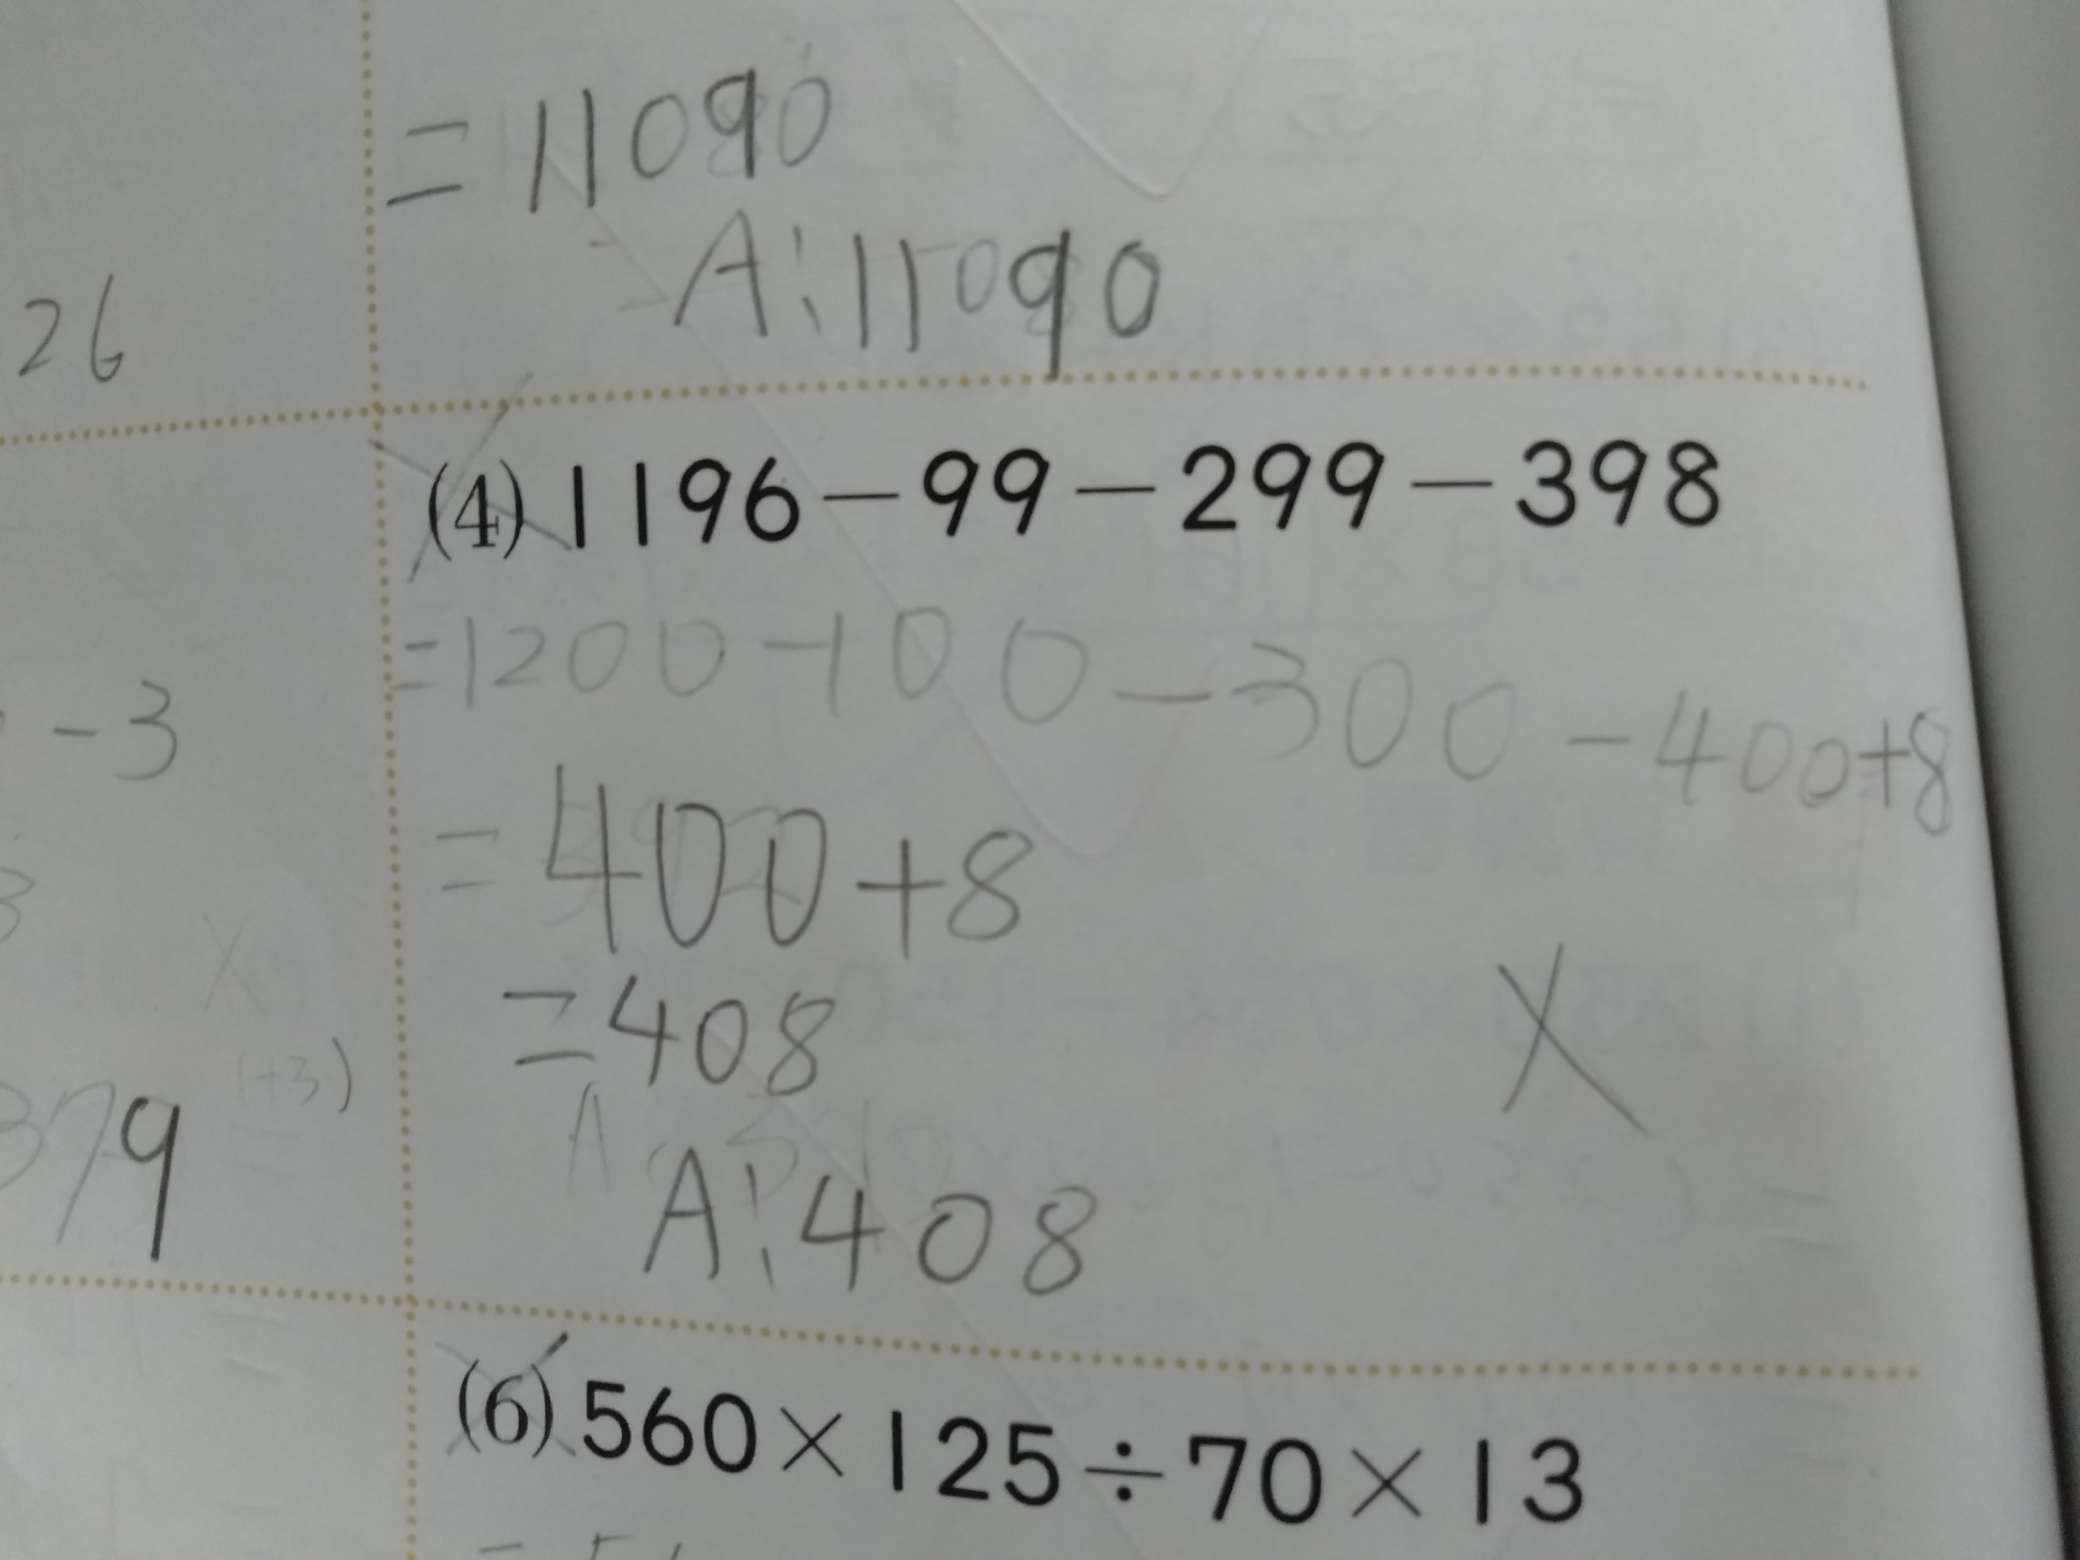 =11090
A:11090
26
(4) 1196-99-299-398
=1200-100-300-400+8
-3
=400+8
=408
(+3)
379
A:408
(6) 560×125÷70×13